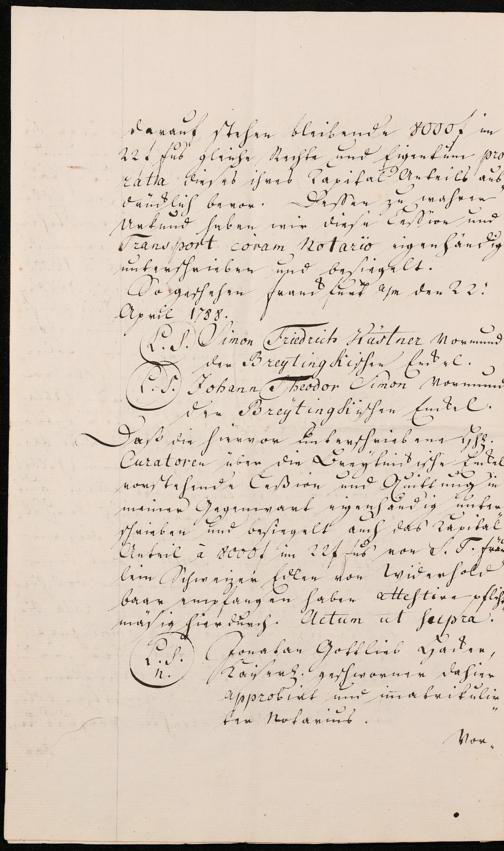 darauf stehen bleibende 8000f im
22f fus gleiche Rechte und Eigentum pro
ratha dieses ihres Kapital Anteils aus
drücklich bevor. Dessen zu wahrer
Urkund haben wir diese Cession und
Transport coram Notario eigenhändig
unterschrieben und besiegelt.
So geschehen Frankfurt a/m den 22.
April 1788.
L. S. Simon Friedrich Küstner Vormund
der Breytingkischen Enkel.
L. S. Johann Theodor Simon Vormund
der Breytingkischen Enkel.
Daß die hiervor unterschriebene
Curatoren über die Enkel
vorstehende Cession und Quittung in
meiner Gegenwart eigenhändig unter
schrieben und besiegelt auch das Kapital
Anteil à 8000f im 22f fus von S. T. Fräu
lein Schweizer Edlen von Widerhold
baar empfangen haben attestire pflicht
mäsig hierdurch. Actum ut supra.
L. S. N. Jonathan Gottlieb
Kaiserl. geschworner dahier
approbirt und immatrikulir
ter Notarius.
Vor-